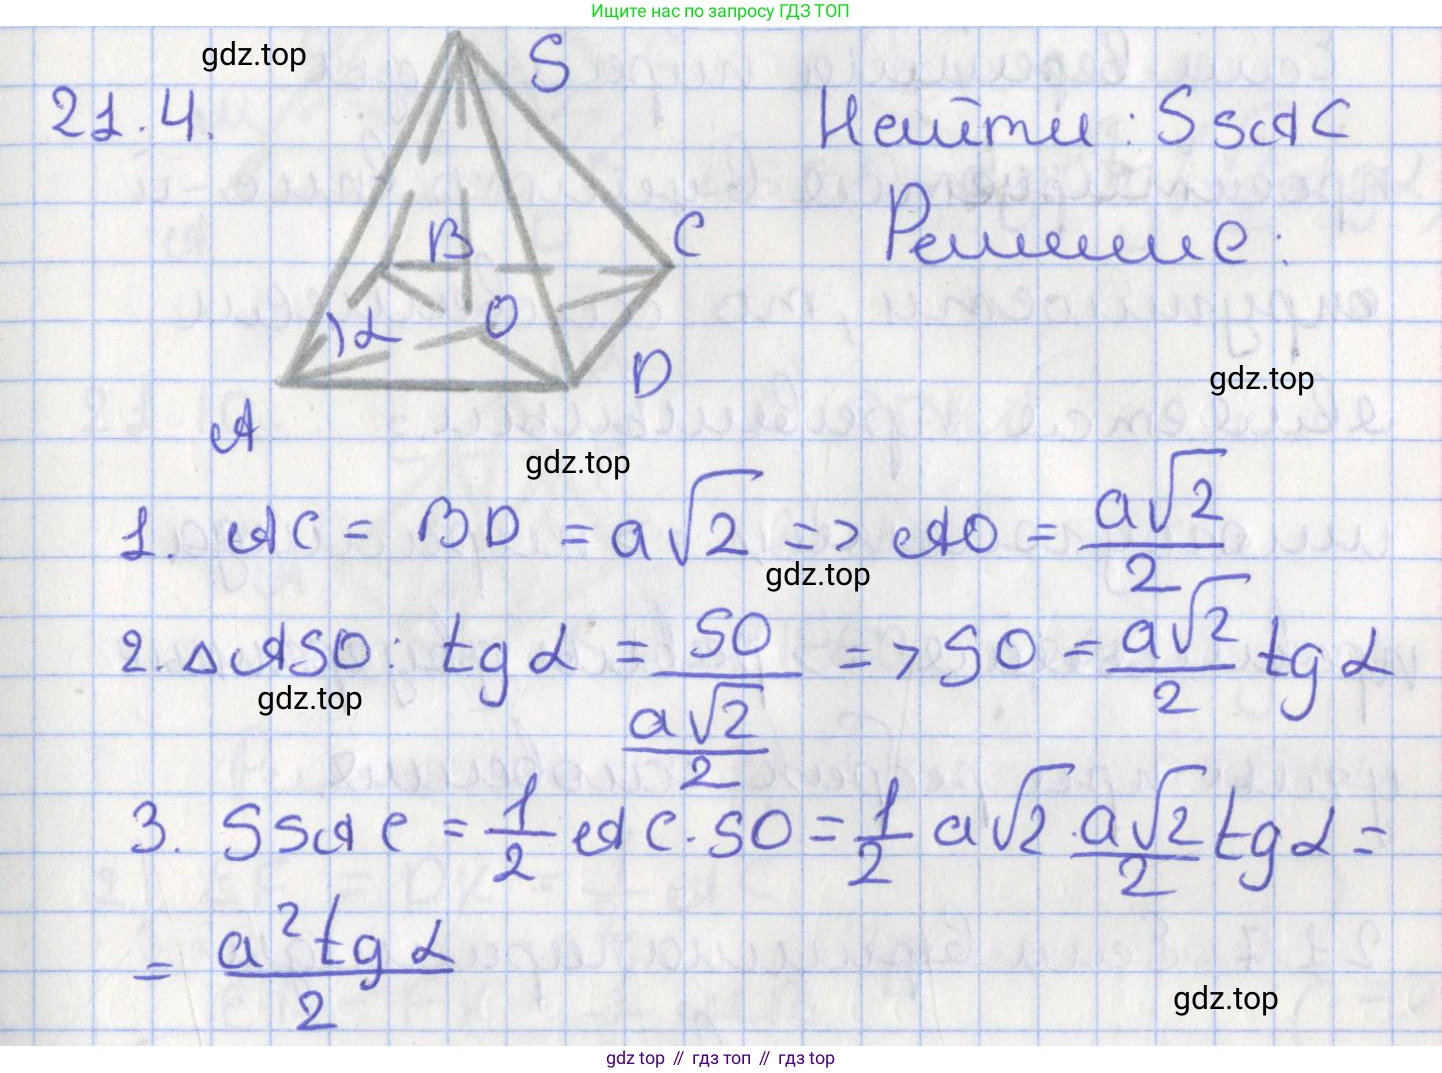 Ищите нас по запросу ГДЗ ТОП
gdz.top
21.4.
S
Найти: S SAC
Решение:
B
C
α
O
D
A
gdz.top
gdz.top
1. AC = BD = a√2 => AO = a√2/2
gdz.top
2. △ASO: tg α = SO/(a√2/2) => SO = a√2/2 tg α
gdz.top
3. S SAC = 1/2 AC · SO = 1/2 a√2 · a√2/2 tg α =
= a² tg α/2
gdz.top
gdz top // гдз топ // gdz top